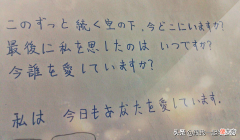 このずっと続く空の下、今どこにいますか?
最後に私を思したのは いつですか?
今誰を愛していますか?
私は 今日もあなたを愛しています.